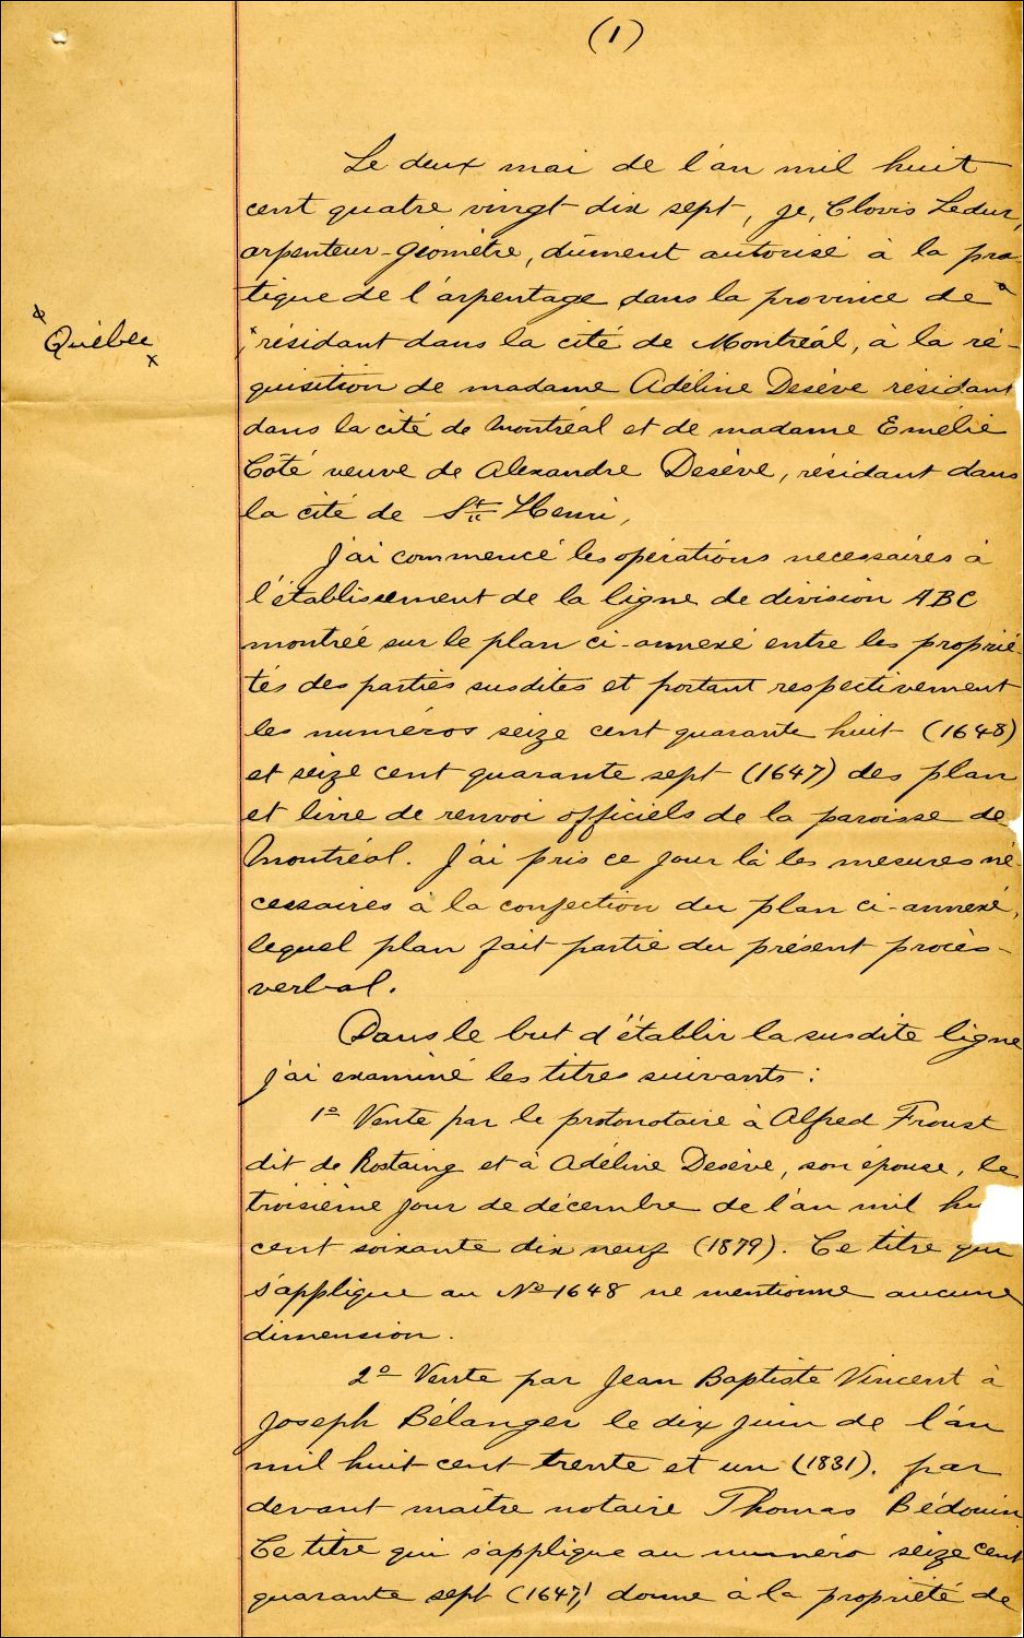 (1)
Le deux mai de l'an mil huit
cent quatre vingt dix sept, je, Clovis Leduc,
arpenteur-géomètre, dûment autorisé à la pra-
tique de l'arpentage dans la province de
Québec
x
résidant dans la cité de Montréal, à la ré-
quisition de madame Adéline Desève résidant
dans la cité de Montréal et de madame Emélie
Côté veuve de Alexandre Desève, résidant dans
la cité de St Henri,
J'ai commencé les opérations nécessaires à
l'établissement de la ligne de division ABC
montrée sur le plan ci-annexé entre les proprié-
tés des parties susdites et portant respectivement
les numéros seize cent quarante huit (1648)
et seize cent quarante sept (1647) des plan
et livre de renvoi officiels de la paroisse de
Montréal. J'ai pris ce jour là les mesures né-
cessaires à la confection du plan ci-annexé,
lequel plan fait partie du présent procès-
verbal.
Dans le but d'établir la susdite ligne
j'ai examiné les titres suivants :
1º Vente par le protonotaire à Alfred Froust
dit de Rostaing et à Adéline Desève, son épouse, le
troisième jour de décembre de l'an mil hu
cent soixante dix neuf (1879). Ce titre qui
s'applique au Nº 1648 ne mentionne aucune
dimension.
2º Vente par Jean Baptiste Vincent à
Joseph Bélanger le dix juin de l'an
mil huit cent trente et un (1831). par
devant maître notaire Thomas Bédouin
Ce titre qui s'applique au numéro seize cent
quarante sept (1647) donne à la propriété de